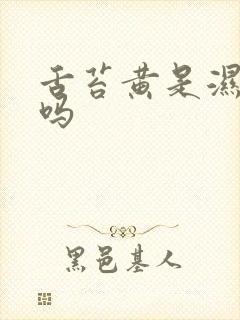 舌苔黄是濕
吗
黑邑基人